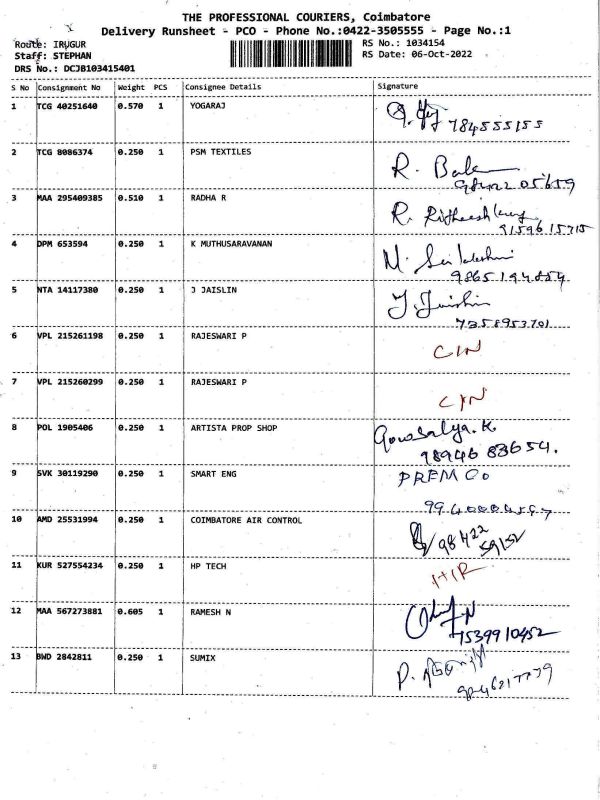 THE PROFESSIONAL COURIERS, Coimbatore
Delivery Runsheet - PCO - Phone No.:0422-3505555 - Page No.:1
Route: IRUGUR RS No.: 1034154
Staff: STEPHAN RS Date: 06-Oct-2022
DRS No.: DCJB103415401
S No Consignment No Weight PCS Consignee Details Signature
1 TCG 40251640 0.570 1 YOGARAJ
784555155
2 TCG 8086374 0.250 1 PSM TEXTILES R.
3 MAA 295409385 0.510 1 RADHA R R. Ritheesh
9159615715
4 DPM 653594 0.250 1 K MUTHUSARAVANAN M.
5 NTA 14117380 0.250 1 J JAISLIN J. Jaislin
7358953701
6 VPL 215261198 0.250 1 RAJESWARI P CIN
7 VPL 215260299 0.250 1 RAJESWARI P
8 POL 1905406 0.250 1 ARTISTA PROP SHOP Gowsalya.K
98946 83654.
9 SVK 30119290 0.250 1 SMART ENG PREM Co
10 AMD 25531994 0.250 1 COIMBATORE AIR CONTROL 98422
59152
11 KUR 527554234 0.250 1 HP TECH
12 MAA 567273881 0.605 1 RAMESH N
7539910452
13 BWD 2842811 0.250 1 SUMIX P.